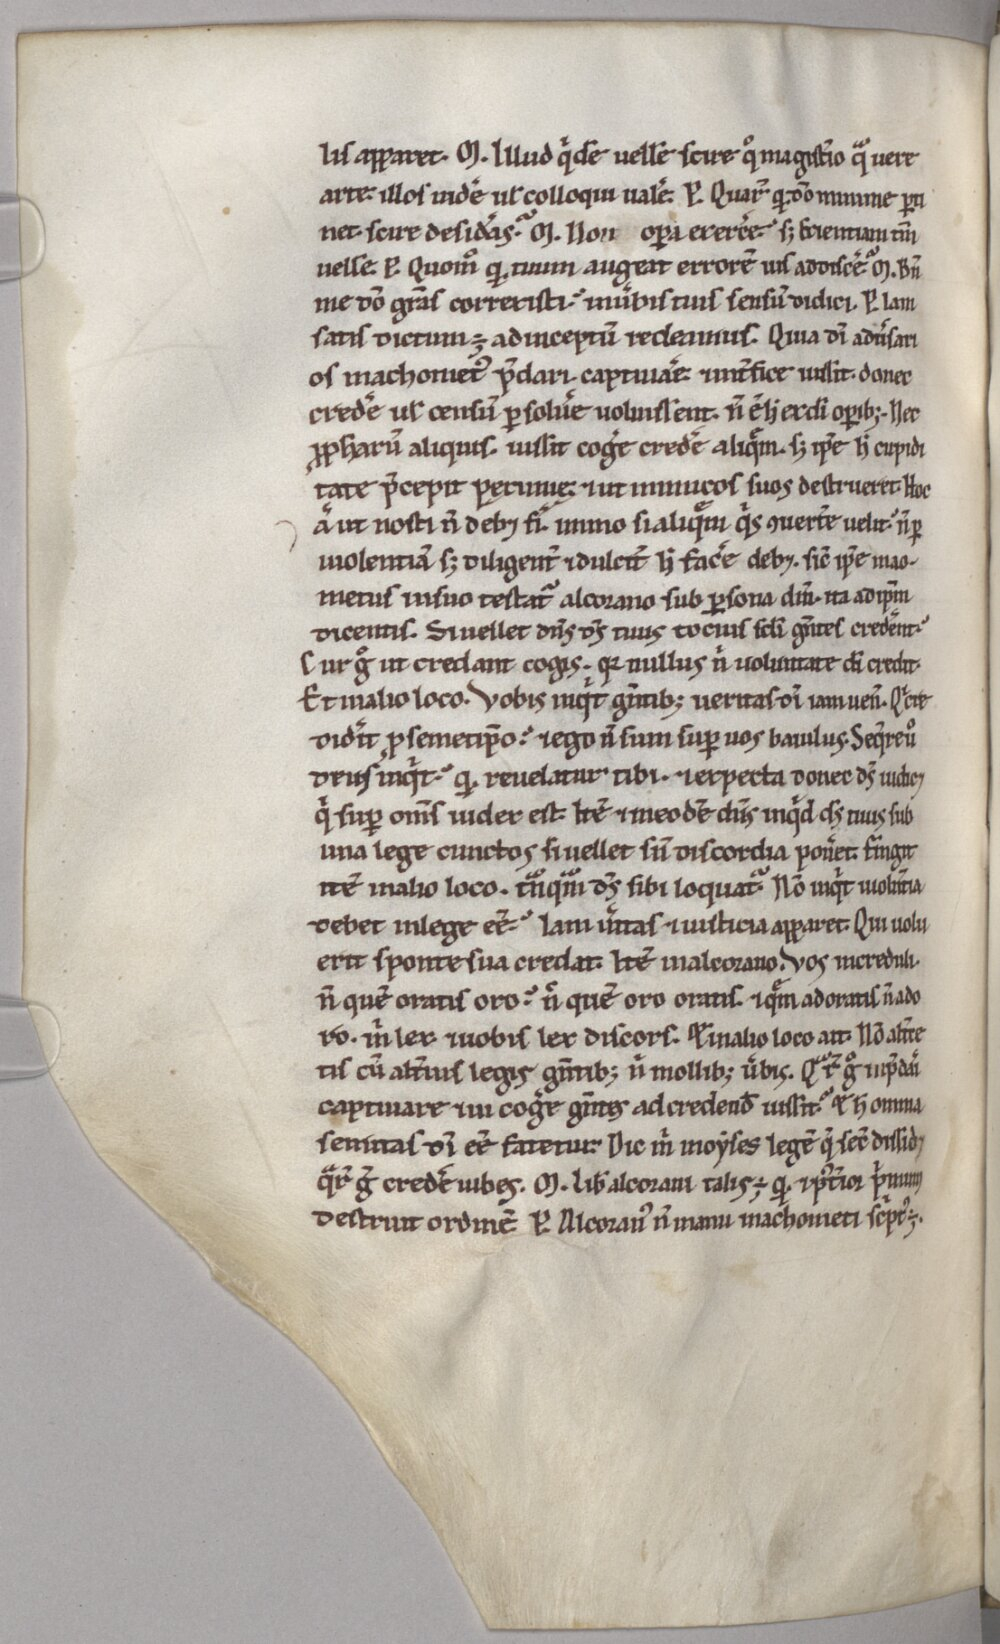 lis apparet. M. Illud q̇dē uellē scire qͦ magistͥo qͣ uere
arte illos indē ul' colloqui ualē. P. Quar̄ qͥ tͦo minime ꝑti
net scire desideͣs. M. Non opͣa exercē. sꝫ scientiam tm̄
uelle. P. Quom̊ qͥ tuum auget errorē uis addiscē. M. Bn̄
me tͦo gr̄as correxisti. in uͤbis tuis sensū didici. P. Iam
satis dictum ÷ ad inceptū redeamus. Quia dī adu̇sari
os machomet⁹ p̄dari captiuāe ⁊ int̄fice iussit. donec
credē ul' censū ꝑsoluē uoluissent. n̄ ē h̄ ex dī oꝑibꝫ. Nec
ꝓphaꝝ aliquis iussit cogē credē aliqͣm. sꝫ ip̄e h̄ cupidi
tate p̄cepit pecunie. ⁊ ut inimicos suos destrueret. Hoc
aͫ ut nosti n̄ debꝫ fī. immo si aliqͣm qͥs ꝯuertē uelit. n̄ ꝑ
uiolentiā sꝫ diligent̄ ⁊ dulcit̄ h̄ facē debꝫ. sic̄ ip̄e mao-
metus in suo testat᷑ alcorano sub ꝑsona dn̄i. ita ad ipm̄
dicentis. Si uellet dn̄s dͫs tuus tocius scl̄i gn̄tes credēnt.
Cur gͦ ut credant cogis. qꝛ nullus nͥ uoluntate dī credit.
Et in alio loco. Vobis inqͥt gn̄tibꝫ ueritas dī iam uen̄. Qͥ cre
didͥit ꝓ semetip̄o. ⁊ ego n̄ sum suꝑ uos baiulus. Seqͤre uͦ
deus inqͥt. qͥ reuelatur tibi. ⁊ expecta donec dͫs iudicꝫ
qͥ suꝑ om̄s iudex est. Itē ⁊ in eodē dn̄s inqͥd dͫs tuus sub
una lege cunctos si uellet sn̄ discordia ponēt. Fingit
itē in alio loco. tͣnqͣm dͫs sibi loquat᷑. Nō inqͥt uiolnͤtia
debet in lege eē. Iam uͥtas ⁊ iusticia apparet. Qui uolu
erit sponte sua credat. Itē in alcorano. Vos increduli.
n̄ quē oratis oro. nͨ quē oro oratis. ⁊ qͣm adoratis n̄ ado
ro. mͥ lex ⁊ uobis lex discors. Et in alio loco ait. Nō alt̄ce
tis cū alt̄ius legis gn̄tibꝫ nͥ mollibꝫ uͤbis. Qͣr̄ gͦ ip̄e dāi
captiuare ⁊ ui cogē gn̄tes ad credend̄ iussit. Et h̄ omnia
semitas dī eē fatetur. Dic mͥ moyses legē qͥ secͥ dissidꝫ
qͣr̄ gͦ credē iubes. M. Lib̄ alcorani talis ÷ qͥ ⁊ p̄t̄ior p̄mum
destruit ordinē. P. Alcoran⁹ n̄ manu machometi scͥpt⁹ ÷.